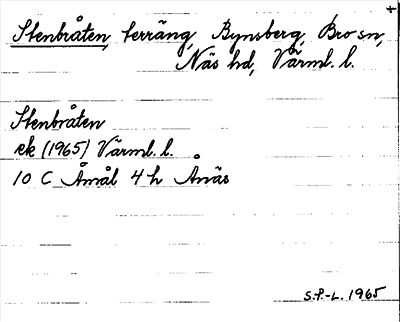 Stenbråten, terräng, Bynsberg, Bro sn,
Näs hd, Värml. l.
Stenbråten
ek (1965) Värml. l.
10 C Åmål 4 h Ånäs
S.P.-L. 1965